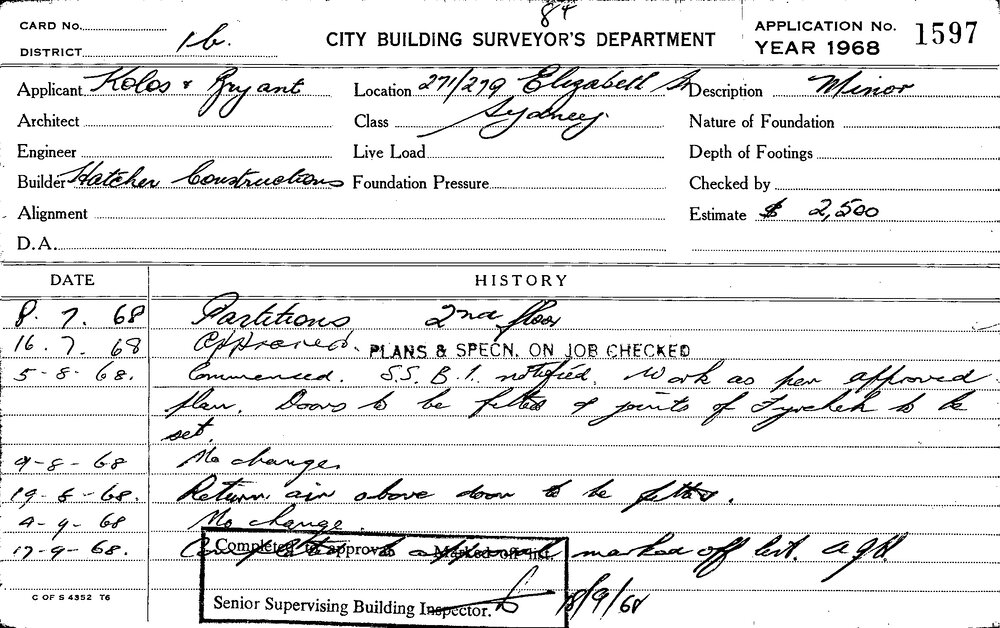 84
CARD No.
DISTRICT 1b.
CITY BUILDING SURVEYOR'S DEPARTMENT
APPLICATION No. 1597
YEAR 1968
Applicant Kolos & Bryant
Location 271/279 Elizabeth St
Sydney.
Description Minor
Architect
Class
Nature of Foundation
Engineer
Live Load
Depth of Footings
Builder Hatcher Constructions
Foundation Pressure
Checked by
Alignment
Estimate $ 2,500
D.A.
DATE HISTORY
8. 7. 68 Partitions 2nd floor
16. 7. 68 Approved. PLANS & SPECN. ON JOB CHECKED
5-8-68. Commenced. S.S.B.I. notified. Work as per approved
plan. Doors to be fitted & joints of Fyrchek to be
set.
9-8-68 No change.
19-8-68. Return air above door to be fitted.
4-9-68 No change.
17-9-68. Completed to approval marked off list. AGH
Completed to approval Marked off list.
Senior Supervising Building Inspector. 18/9/68
C OF S 4352 T6